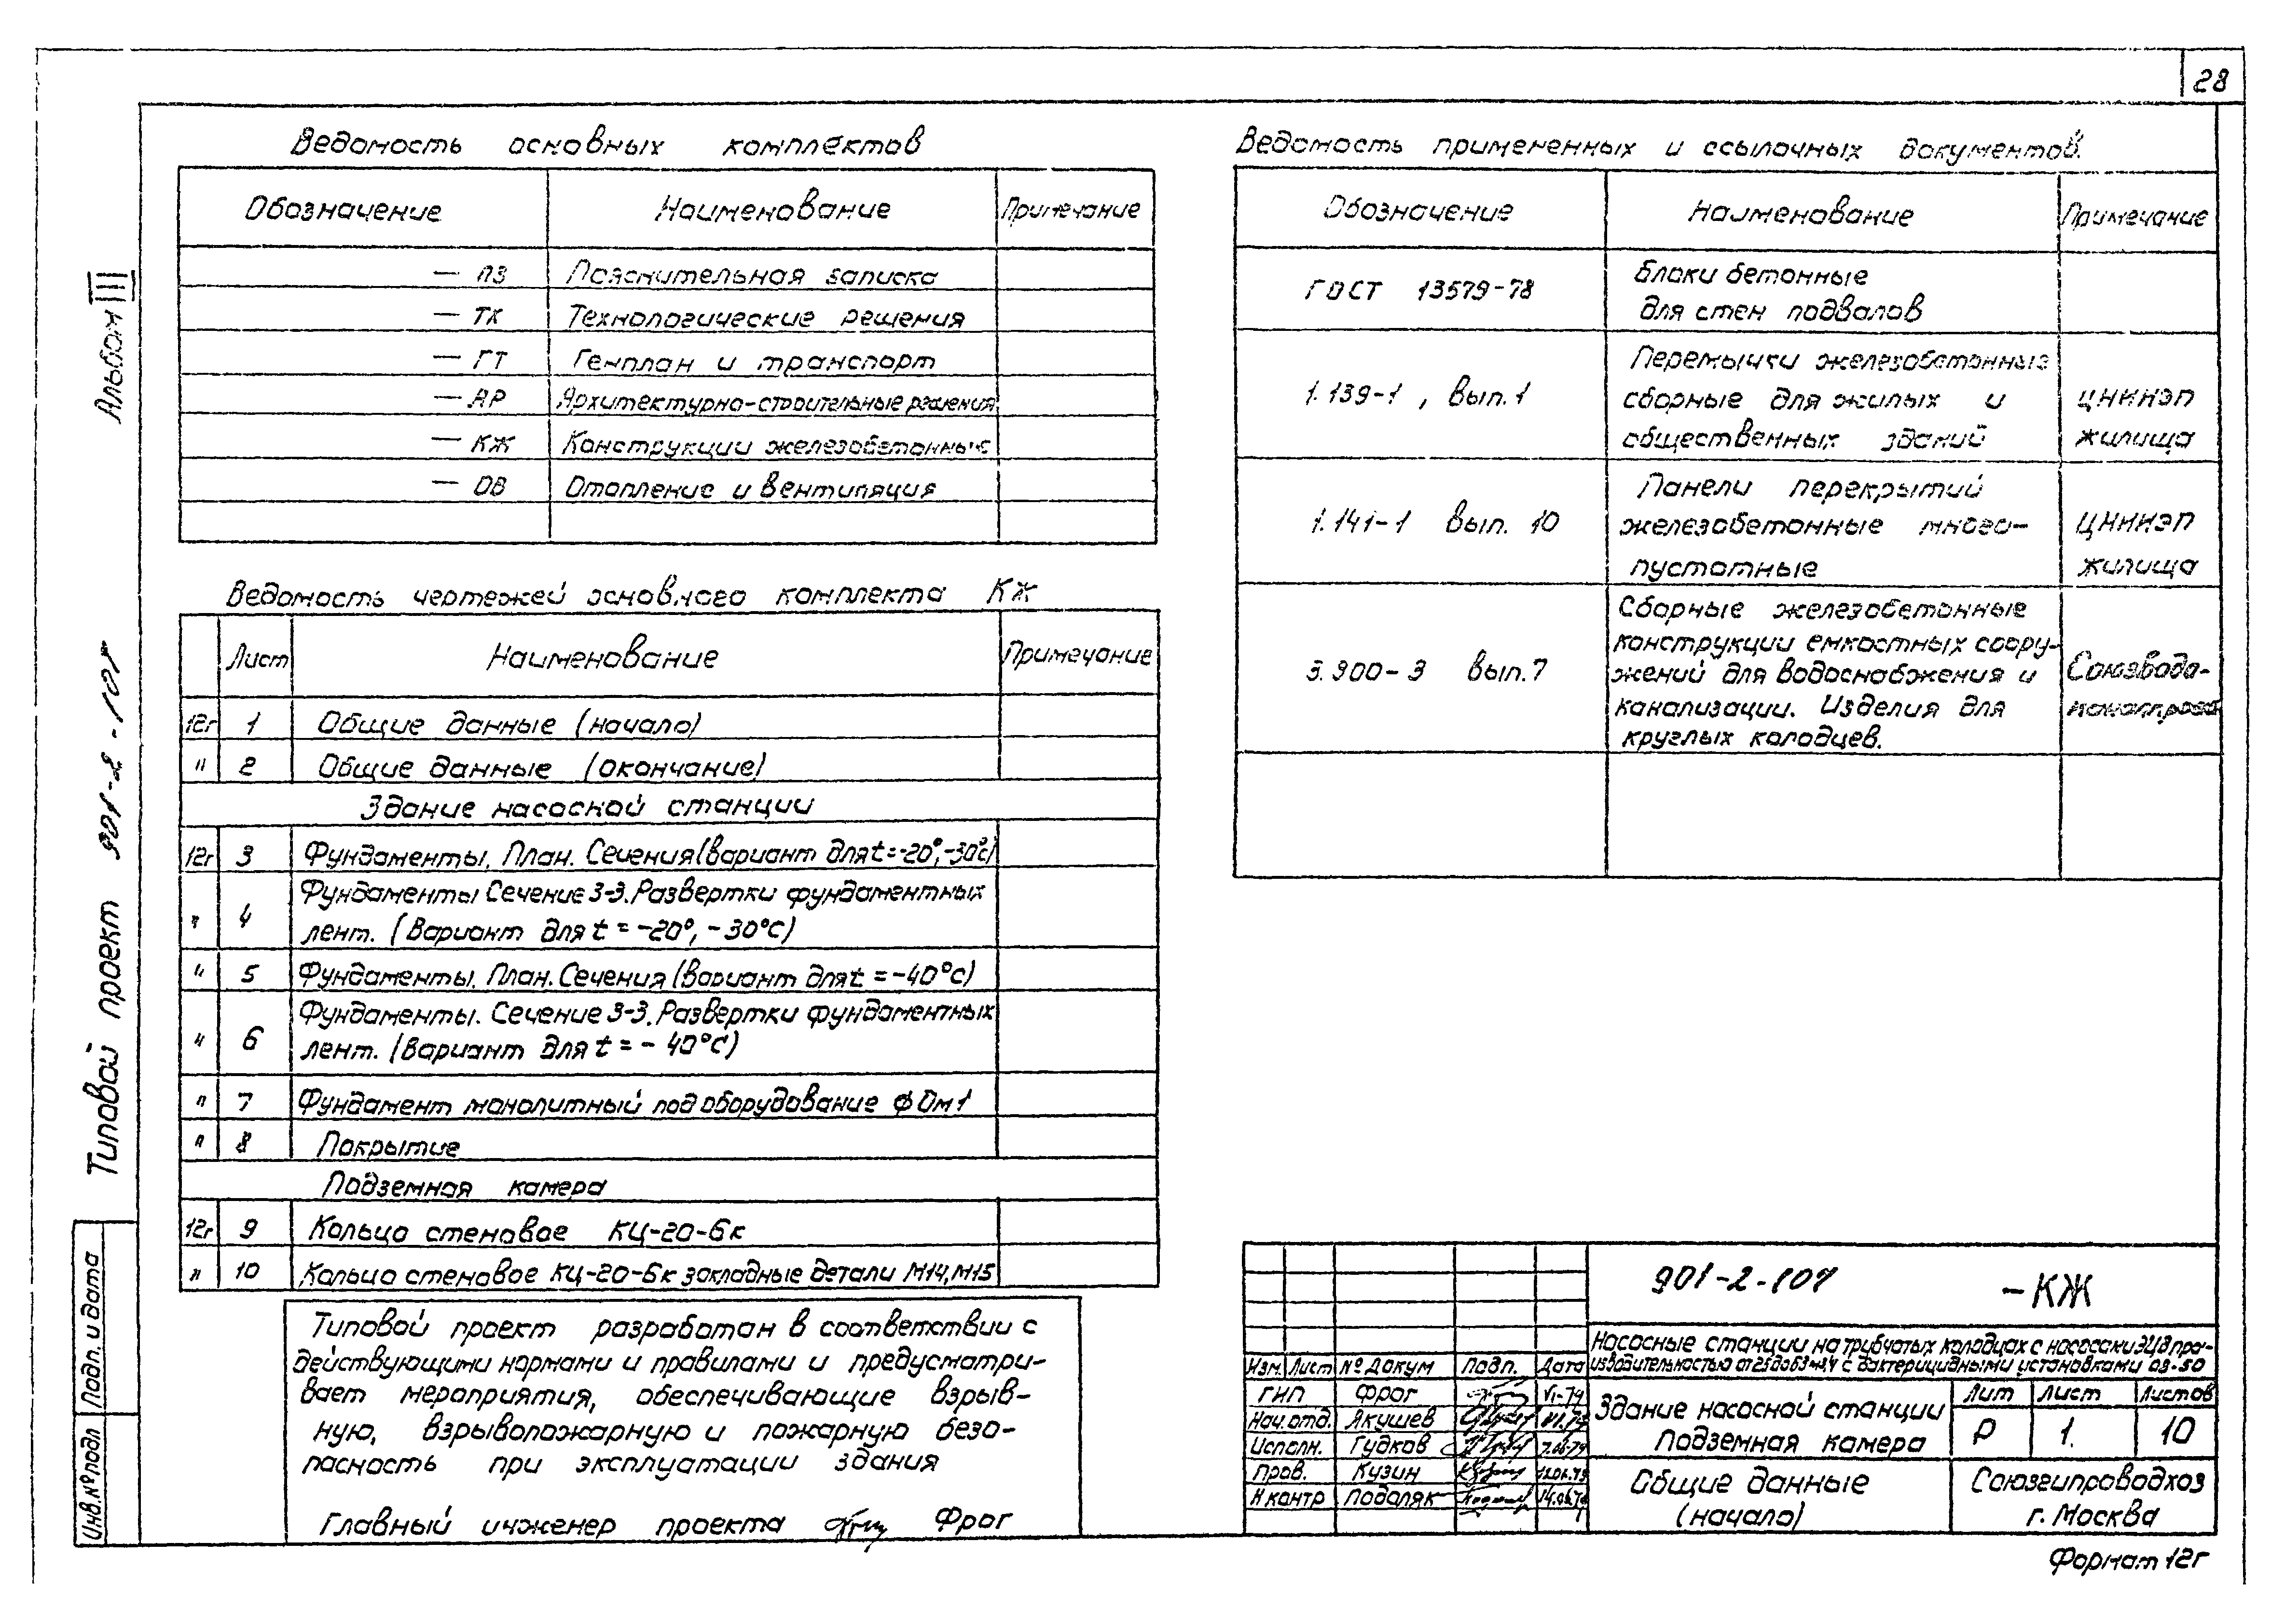 28
Альбом III
Типовой проект 901-2-107
Подп. и дата
Инв.№ подл
Ведомость основных комплектов
Обозначение Наименование Примечание
— ПЗ Пояснительная записка
— ТХ Технологические решения
— ГТ Генплан и транспорт
— АР Архитектурно-строительные решения
— КЖ Конструкции железобетонные
— ОВ Отопление и вентиляция
Ведомость чертежей основного комплекта КЖ
Лист Наименование Примечание
12г 1 Общие данные (начало)
" 2 Общие данные (окончание)
Здание насосной станции
12г 3 Фундаменты. План. Сечения (вариант для t=-20°,-30°с)
" 4 Фундаменты Сечение 3-3. Развертки фундаментных
лент. (Вариант для t = -20°, -30°с)
" 5 Фундаменты. План. Сечения (вариант для t = -40°с)
" 6 Фундаменты. Сечение 3-3. Развертки фундаментных
лент. (вариант для t = - 40°с)
" 7 Фундамент монолитный под оборудование ФОм1
" 8 Покрытие
Подземная камера
12г 9 Кольцо стеновое КЦ-20-6к
" 10 Кольцо стеновое КЦ-20-6к закладные детали М14, М15
Типовой проект разработан в соответствии с
действующими нормами и правилами и предусматри-
вает мероприятия, обеспечивающие взрыв-
ную, взрывопожарную и пожарную безо-
пасность при эксплуатации здания
Главный инженер проекта Фрог
Ведомость примененных и ссылочных документов.
Обозначение Наименование Примечание
ГОСТ 13579-78 Блоки бетонные
для стен подвалов
Перемычки железобетонные
1.139-1, Вып.1 сборные для жилых и ЦНИИЭП
общественных зданий жилища
Панели перекрытий
1.141-1 Вып. 10 железобетонные много- ЦНИИЭП
пустотные жилища
Сборные железобетонные
конструкции емкостных соору-
3.900-3 Вып.7 жений для водоснабжения и Союзвода-
канализации. Изделия для
круглых колодцев.
901-2-107 -КЖ
Насосные станции на трубчатых колодцах с насосами ЭЦВ про-
Изм. Лист № докум Подп. Дата изводительностью от 25 до 63 м³/ч с бактерицидными установками ОВ-50
ГИП Фрог VI-79 Здание насосной станции Лит Лист Листов
Нач. отд. Якушев VI.79 Подземная камера Р 1. 10
Исполн. Гудков
Пров. Кузин Общие данные Союзгипроводхоз
Н контр Подоляк (начало) г. Москва
Формат 12г